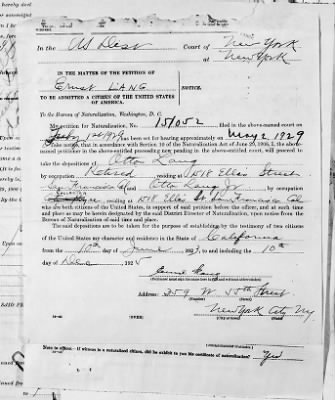 In the US Dist Court of New York
at New York
IN THE MATTER OF THE PETITION OF
Ernst LANG
TO BE ADMITTED A CITIZEN OF THE UNITED STATES
OF AMERICA.
NOTICE.
To the Bureau of Naturalization, Washington, D. C.
My petition for Naturalization, No. 151052 filed in the above-named court on
has been set for hearing approximately on May 2, 1929
Take notice, that in accordance with Section 10 of the Naturalization Act of June 29, 1906, I, the
above-named petitioner in the above-entitled proceeding now pending in the above-entitled court, will proceed to
take the depositions of Otto Lang
by occupation Retired residing at 1518 Ellis Street
San Francisco Cal and Otto Lang Jr by occupation
residing at 1518 Ellis St San Francisco Cal
who are both citizens of the United States, in support of said petition before the officer, and at such time
and place as may be herein designated by the said District Director of Naturalization, upon notice from the
Bureau of Naturalization of said time and place.
The said depositions are to be taken for the purpose of establishing by the testimony of two citizens
of the United States my character and residence in the State of California
from the 10th day of 1923, to and including the 10th
day of 1925
Ernst Lang
Address: 359 W 55th Street
New York City Ny
Note to officer: If witness is a naturalized citizen, did he exhibit to you his certificate of naturalization? Yes